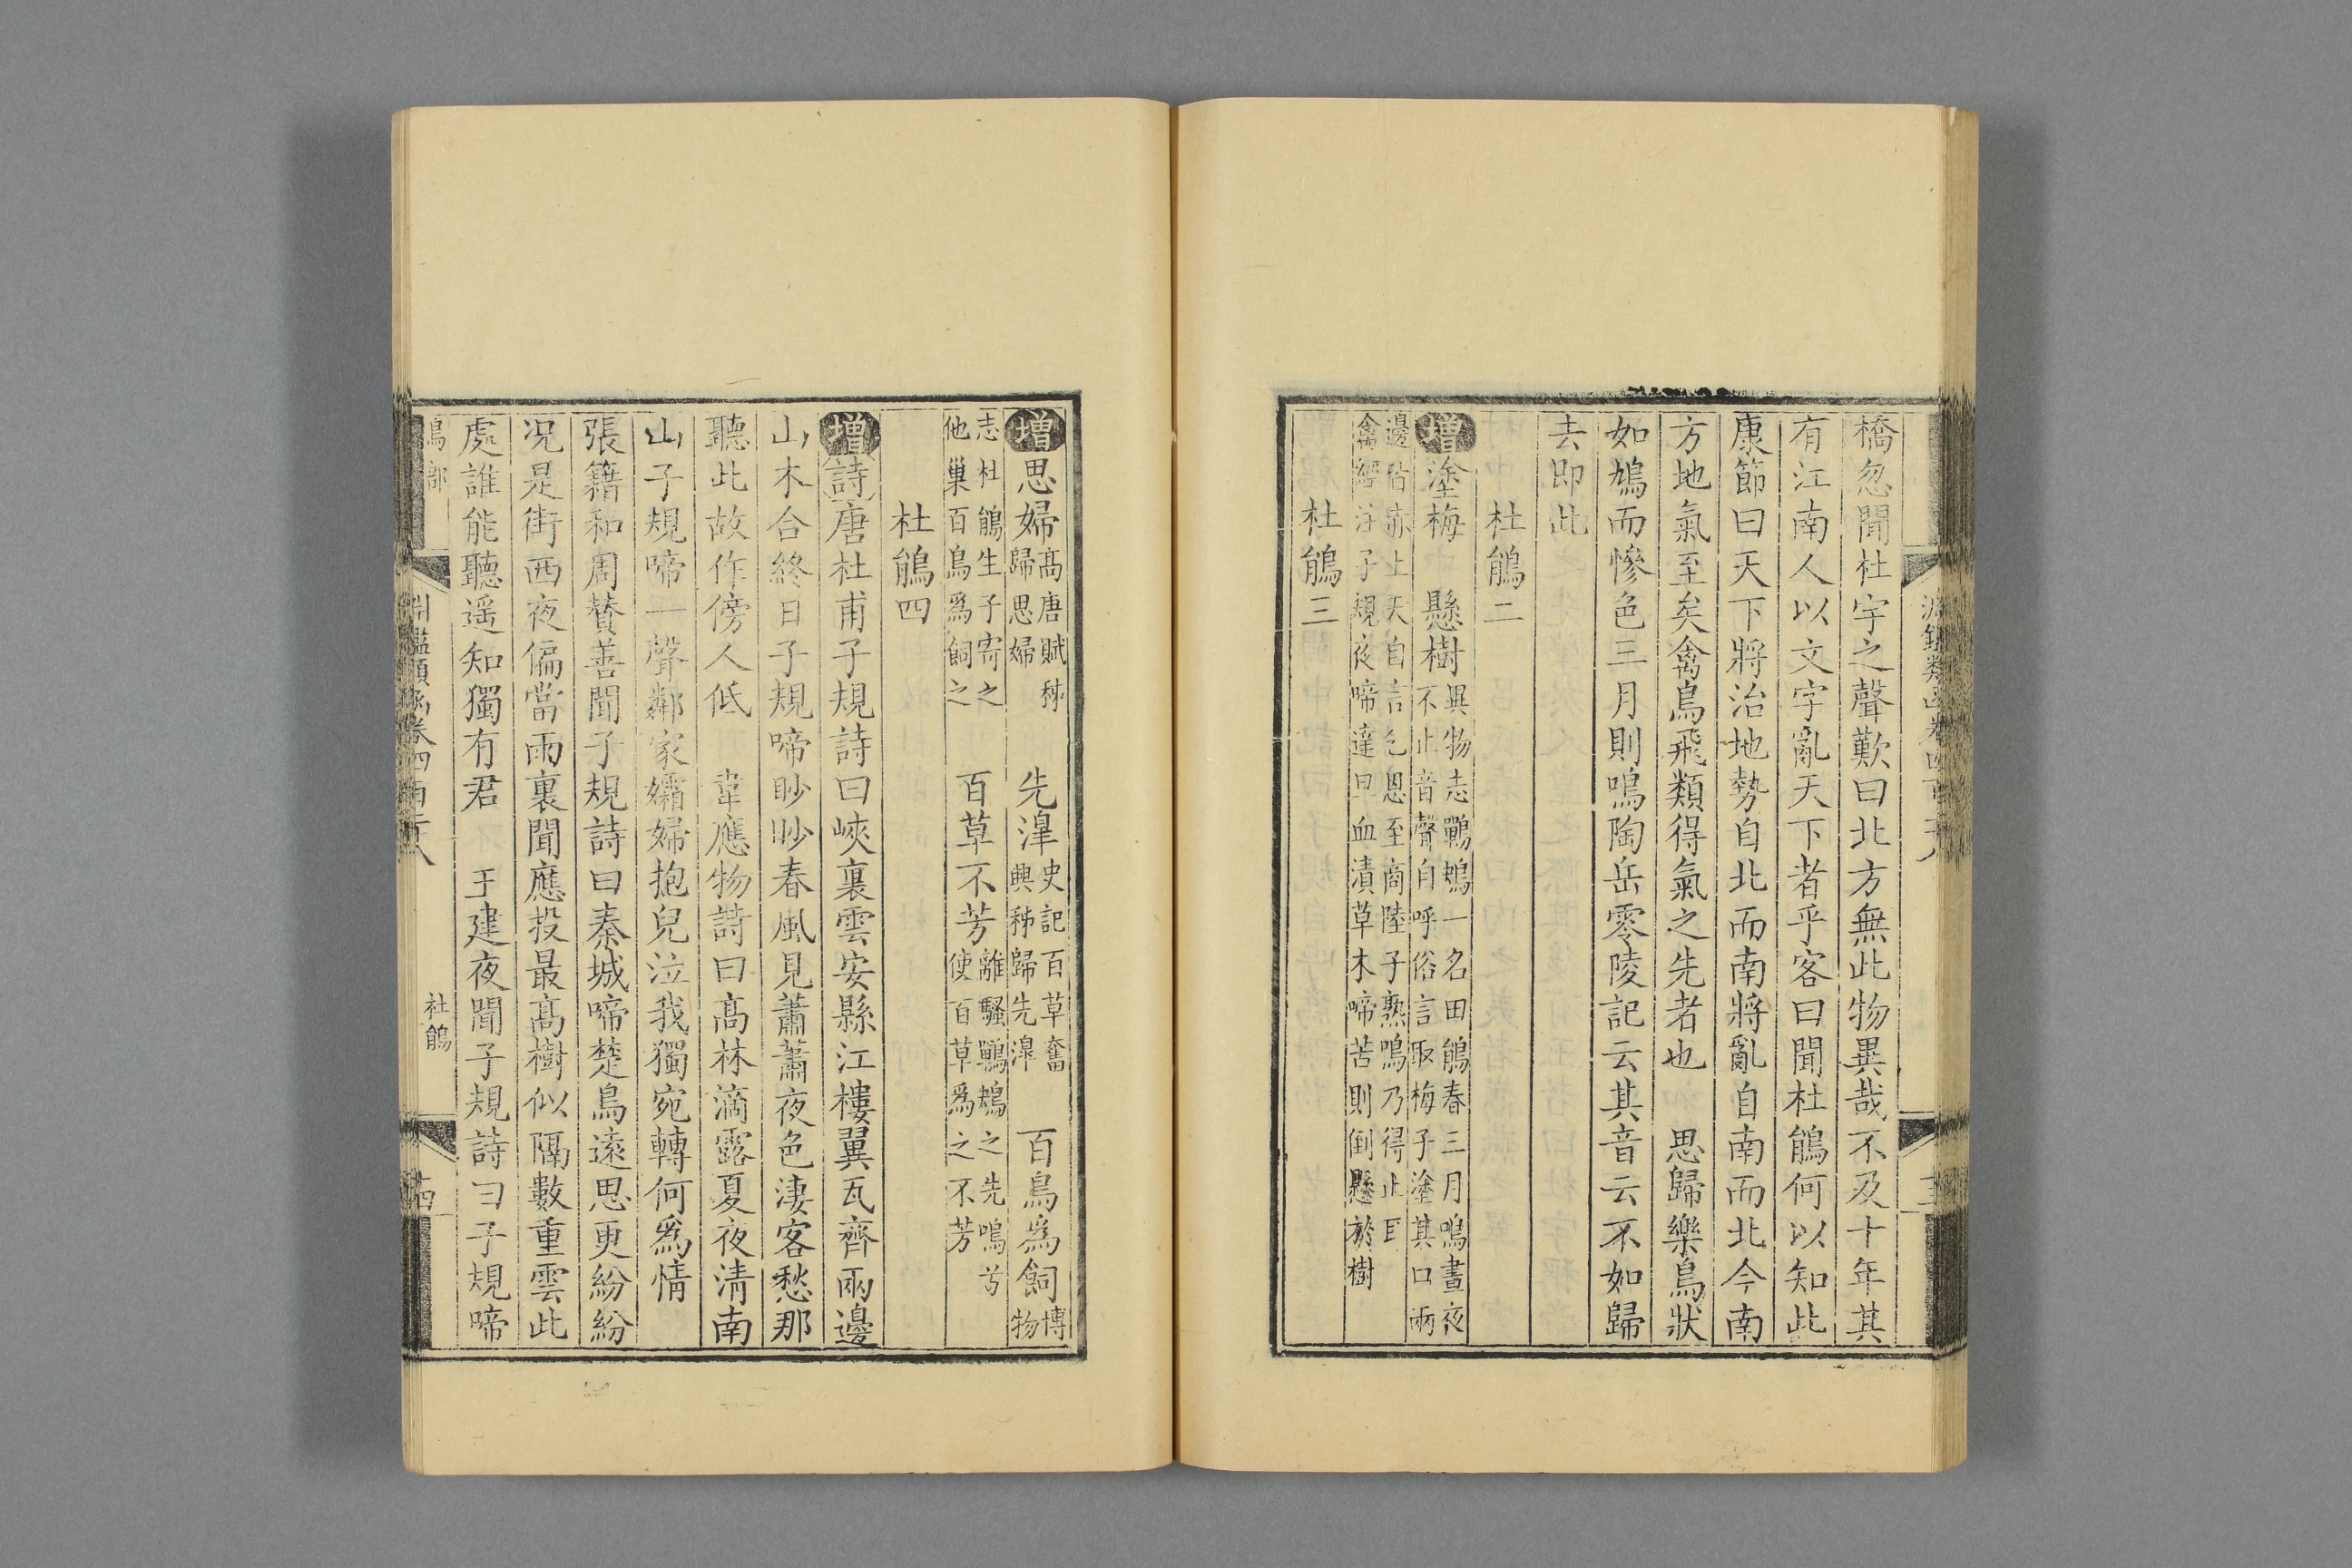 橋忽聞杜宇之聲歎曰北方無此物異哉不及十年其
有江南人以文字亂天下者乎客曰聞杜鵑何以知此
康節曰天下將治地勢自北而南將亂自南而北今南
方地氣至矣禽鳥飛類得氣之先者也 思歸樂鳥狀
如鳩而慘色三月則鳴陶岳零陵記云其音云不如歸
去即此
杜鵑二
增塗梅 懸樹異物志鷤鴂一名田鵑春三月鳴晝夜
不止音聲自呼俗言取梅子塗其口兩
邊皆赤上天自言乞恩至商陸子熟鳴乃得止耳
禽經注子規夜啼達旦血漬草木啼苦則倒懸於樹
杜鵑三
增思婦高唐賦秭
歸思婦 先滜史記百草奮
興秭歸先滜 百鳥爲飼博
物
志杜鵑生子寄之
他巢百鳥爲飼之 百草不芳離騷鷤鴂之先鳴兮
使百草爲之不芳
杜鵑四
增詩唐杜甫子規詩曰峽裏雲安縣江樓翼瓦齊兩邊
山木合終日子規啼眇眇春風見蕭蕭夜色淒客愁那
聽此故作傍人低 韋應物詩曰高林滴露夏夜清南
山子規啼一聲鄰家孀婦抱兒泣我獨宛轉何爲情
張籍和周贊善聞子規詩曰秦城啼楚鳥遠思更紛紛
况是街西夜偏當雨裏聞應投最高樹似隔數重雲此
處誰能聽遥知獨有君 王建夜聞子規詩曰子規啼
鳥部
淵鑑類函卷四百二十八
杜鵑
十四